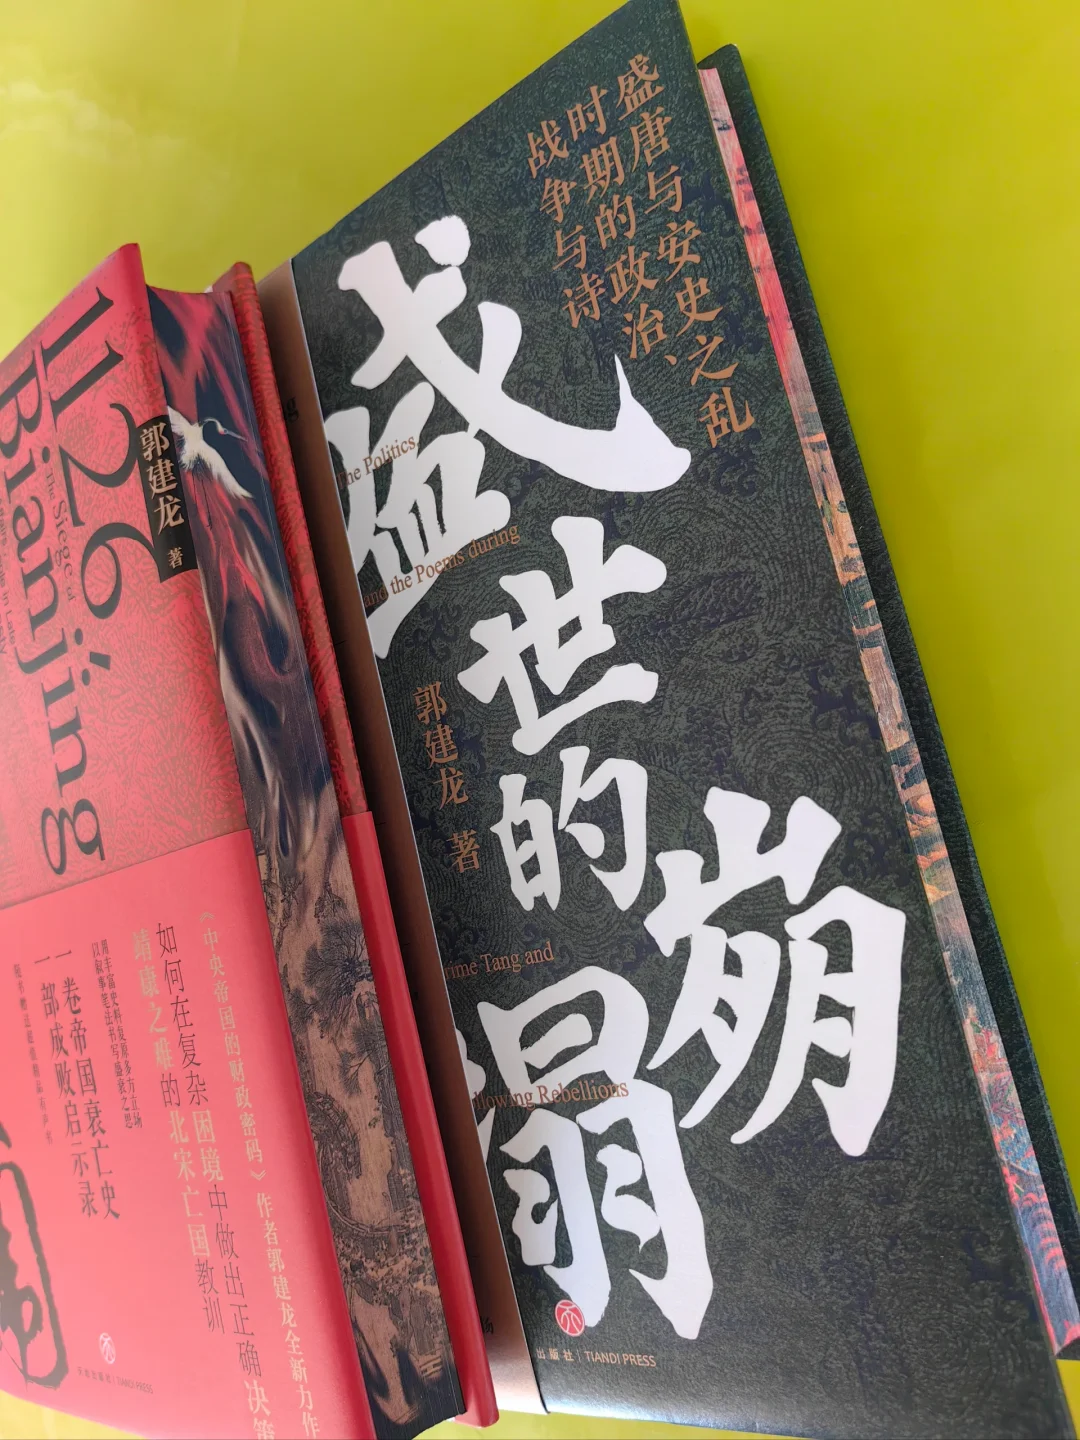 1126
Bianjing
The Siege of
郭建龙 著
《中央帝国的财政密码》作者郭建龙全新力作
如何在复杂困境中做出正确决策
靖康之难的北宋亡国教训
用丰富史料复原多方立场
以叙事笔法书写盛衰之思
一卷帝国衰亡史
一部成败启示录
天地出版社 | TIANDI PRESS
盛唐与安史之乱
时期的政治、
战争与诗
盛世的
崩塌
The Politics,
and the Poems during
郭建龙 著
Prime Tang and
Following Rebellious
出版社 | TIANDI PRESS